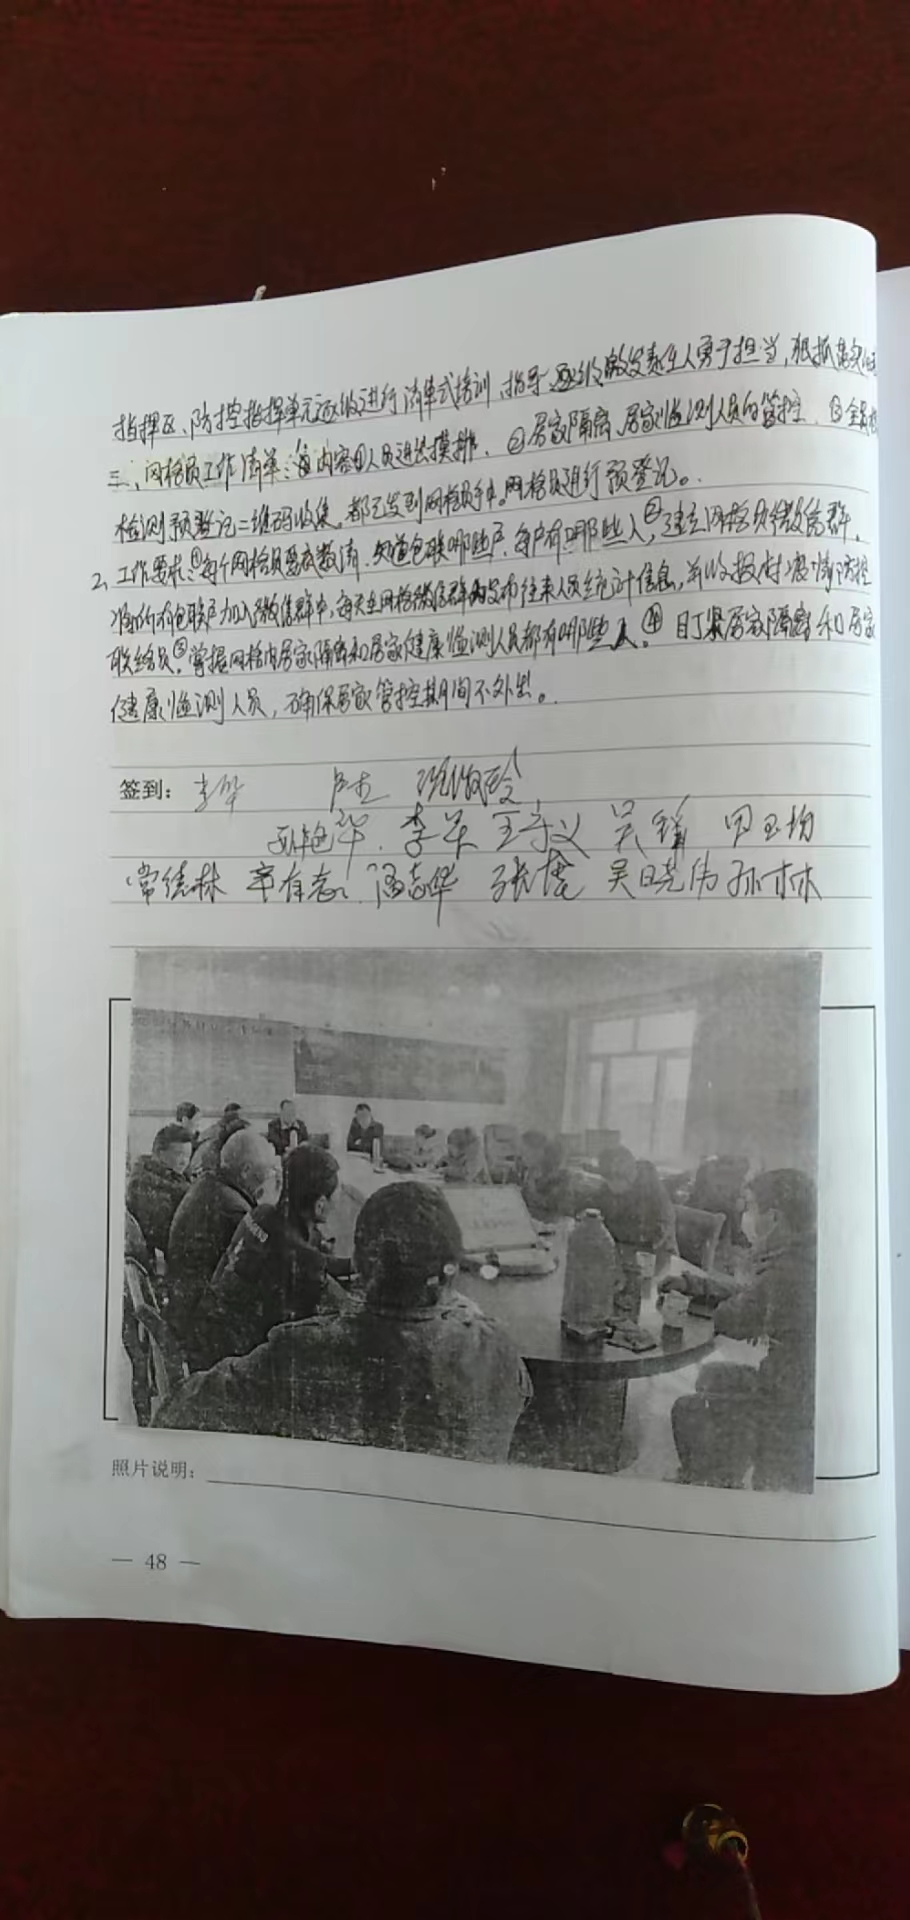 指挥区、防控指挥单元逐级进行清单式培训、指导、逐级激发责任人勇于担当,狠抓落实
三、网格员工作清单:内容①人员进出摸排、②居家隔离、居家监测人员的管控、③全员核
检测预登记二维码收集。都已发到网格员手中。网格员进行预登记。
2、工作要求:①每个网格员要底数清、知道包联哪些户、每户有哪些人,②建立网格员微信群,
将所有包联户加入微信群中,每天在网格微信群内发布往来人员统计信息,并收报村疫情防控
联络员。③掌握网格内居家隔离和居家健康监测人员都有哪些人。④盯紧居家隔离和居家
健康监测人员,确保居家管控期间不外出。
签到:李华
李美 王守义 吴锋
常德林 潘志华 张虎 吴晓伟 孙林
照片说明:
— 48 —